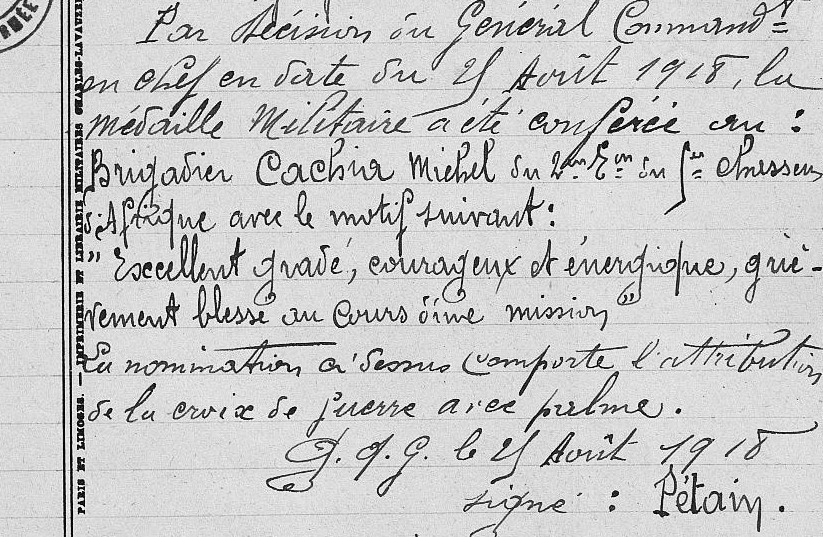 Par décision du Général Commandt
en chef en date du 25 Août 1918, la
médaille Militaire a été conférée au :
Brigadier Cachia Michel du 2me Eon du 5me Chasseurs
d'Afrique avec le motif suivant :
" Excellent gradé, courageux et énergique, griè-
vement blessé au cours d'une mission "
La nomination ci dessus comporte l'attribution
de la croix de guerre avec palme.
G. Q. G. le 25 Août 1918
signé : Pétain.
PARIS ET LIMOGES. — IMPRIMERIE ET LIBRAIRIE MILITAIRES CHARLES-LAVAUZELLE